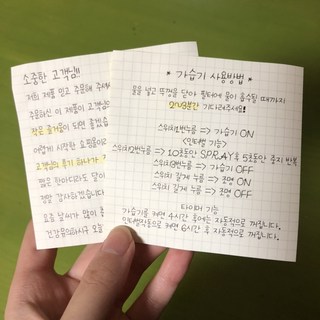 소중한 고객님!!
저희 제품 믿고 주문해 주셔
주문하신 이 제품이 고객님
작은 즐거움이 되면 좋겠습
어렵게 시작한 쇼핑몰이라
고객님의 후기 하나가
짧은 한마디라도 달아
정말 감사하겠습니다
요즘 날씨가 많이
건강유의하시구 오늘
* 가습기 사용방법 *
물을 넣고 뚜껑을 닫아 필터에 물이 흡수될 때까지
2~3분간 기다려주세요!
스위치1번누름 => 가습기 ON
<인터벌 기능>
스위치2번누름 => 10초동안 SPRAY후 5초동안 중지 반복
스위치3번누름 => 가습기 OFF
스위치 길게 누름 => 조명 ON
스위치 길게 누름 => 조명 OFF
타이머 기능
가습기를 켜면 4시간 후에는 자동적으로 꺼집니다.
인터벌작동으로 켜면 6시간 후 자동적으로 꺼집니다.